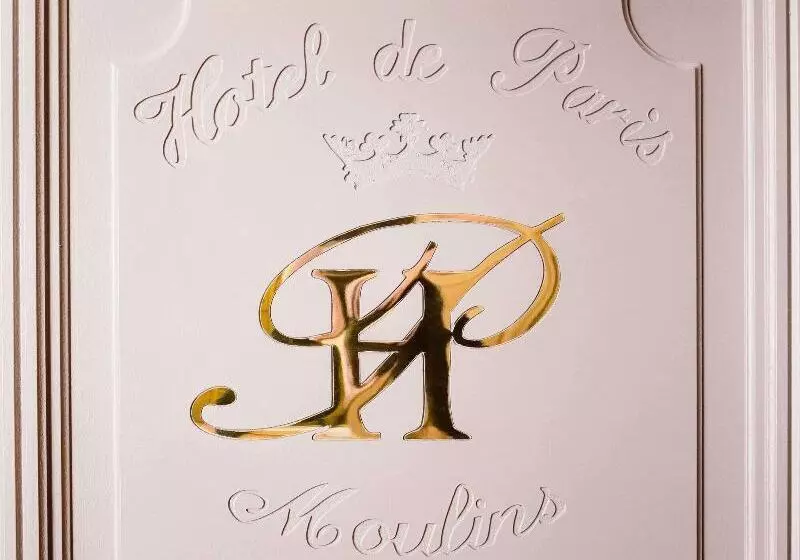 Hotel de Paris
HP
Moulins